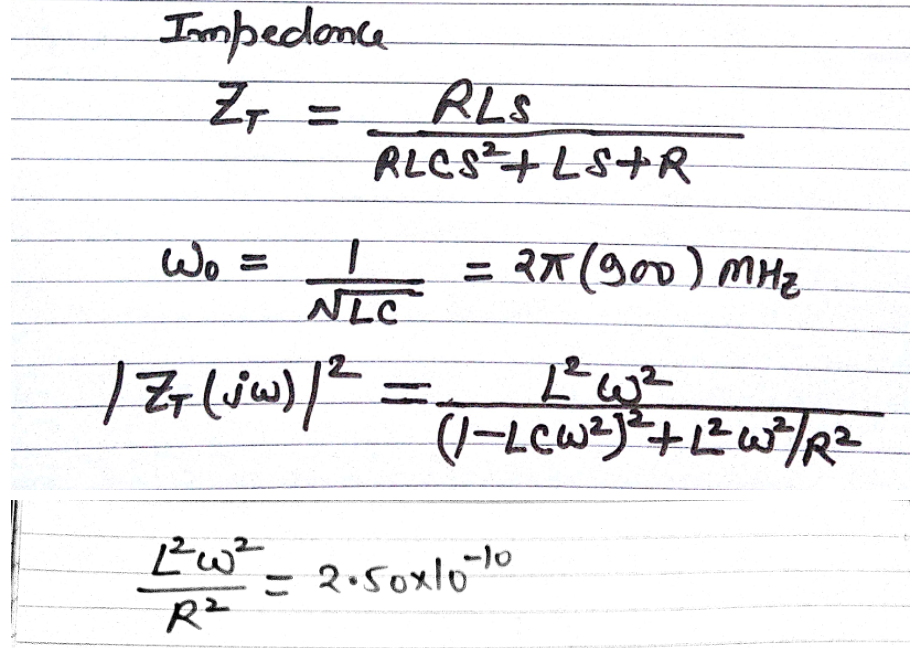 Impedance
Z_T = RLS / (RLCS² + LS + R)
ω₀ = 1 / √LC = 2π(900) MHz
|Z_T(jω)|² = L²ω² / ((1-LCω²)² + L²ω²/R²)
L²ω² / R² = 2.50x10⁻¹⁰